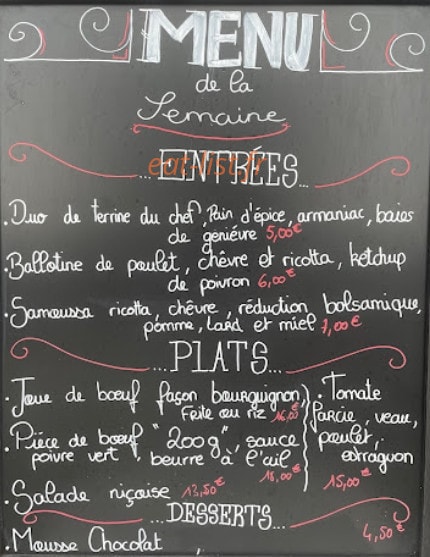 MENU
de la
Semaine
eat-list.fr
...ENTRÉES...
.Duo de terrine du chef, Pain d'épice, armaniac, baies
de geniévre 5,00€
.Ballotine de poulet, chêvre et ricotta, ketchup
de poivron 6,00€
.Samoussa ricotta, chêvre, réduction bolsamique,
pomme, Lard et miel 7,00€
...PLATS...
.Joue de boeuf façon bourguignon,
Frite ou riz 16,00€
.Pièce de boeuf "200g", sauce
poivre vert, beurre à l'ail
18,00€
.Salade niçoise 13,50€
.Tomate
farcie, veau,
poulet,
estraguon
15,00€
...DESSERTS...
.Mousse Chocolat , 4,50€